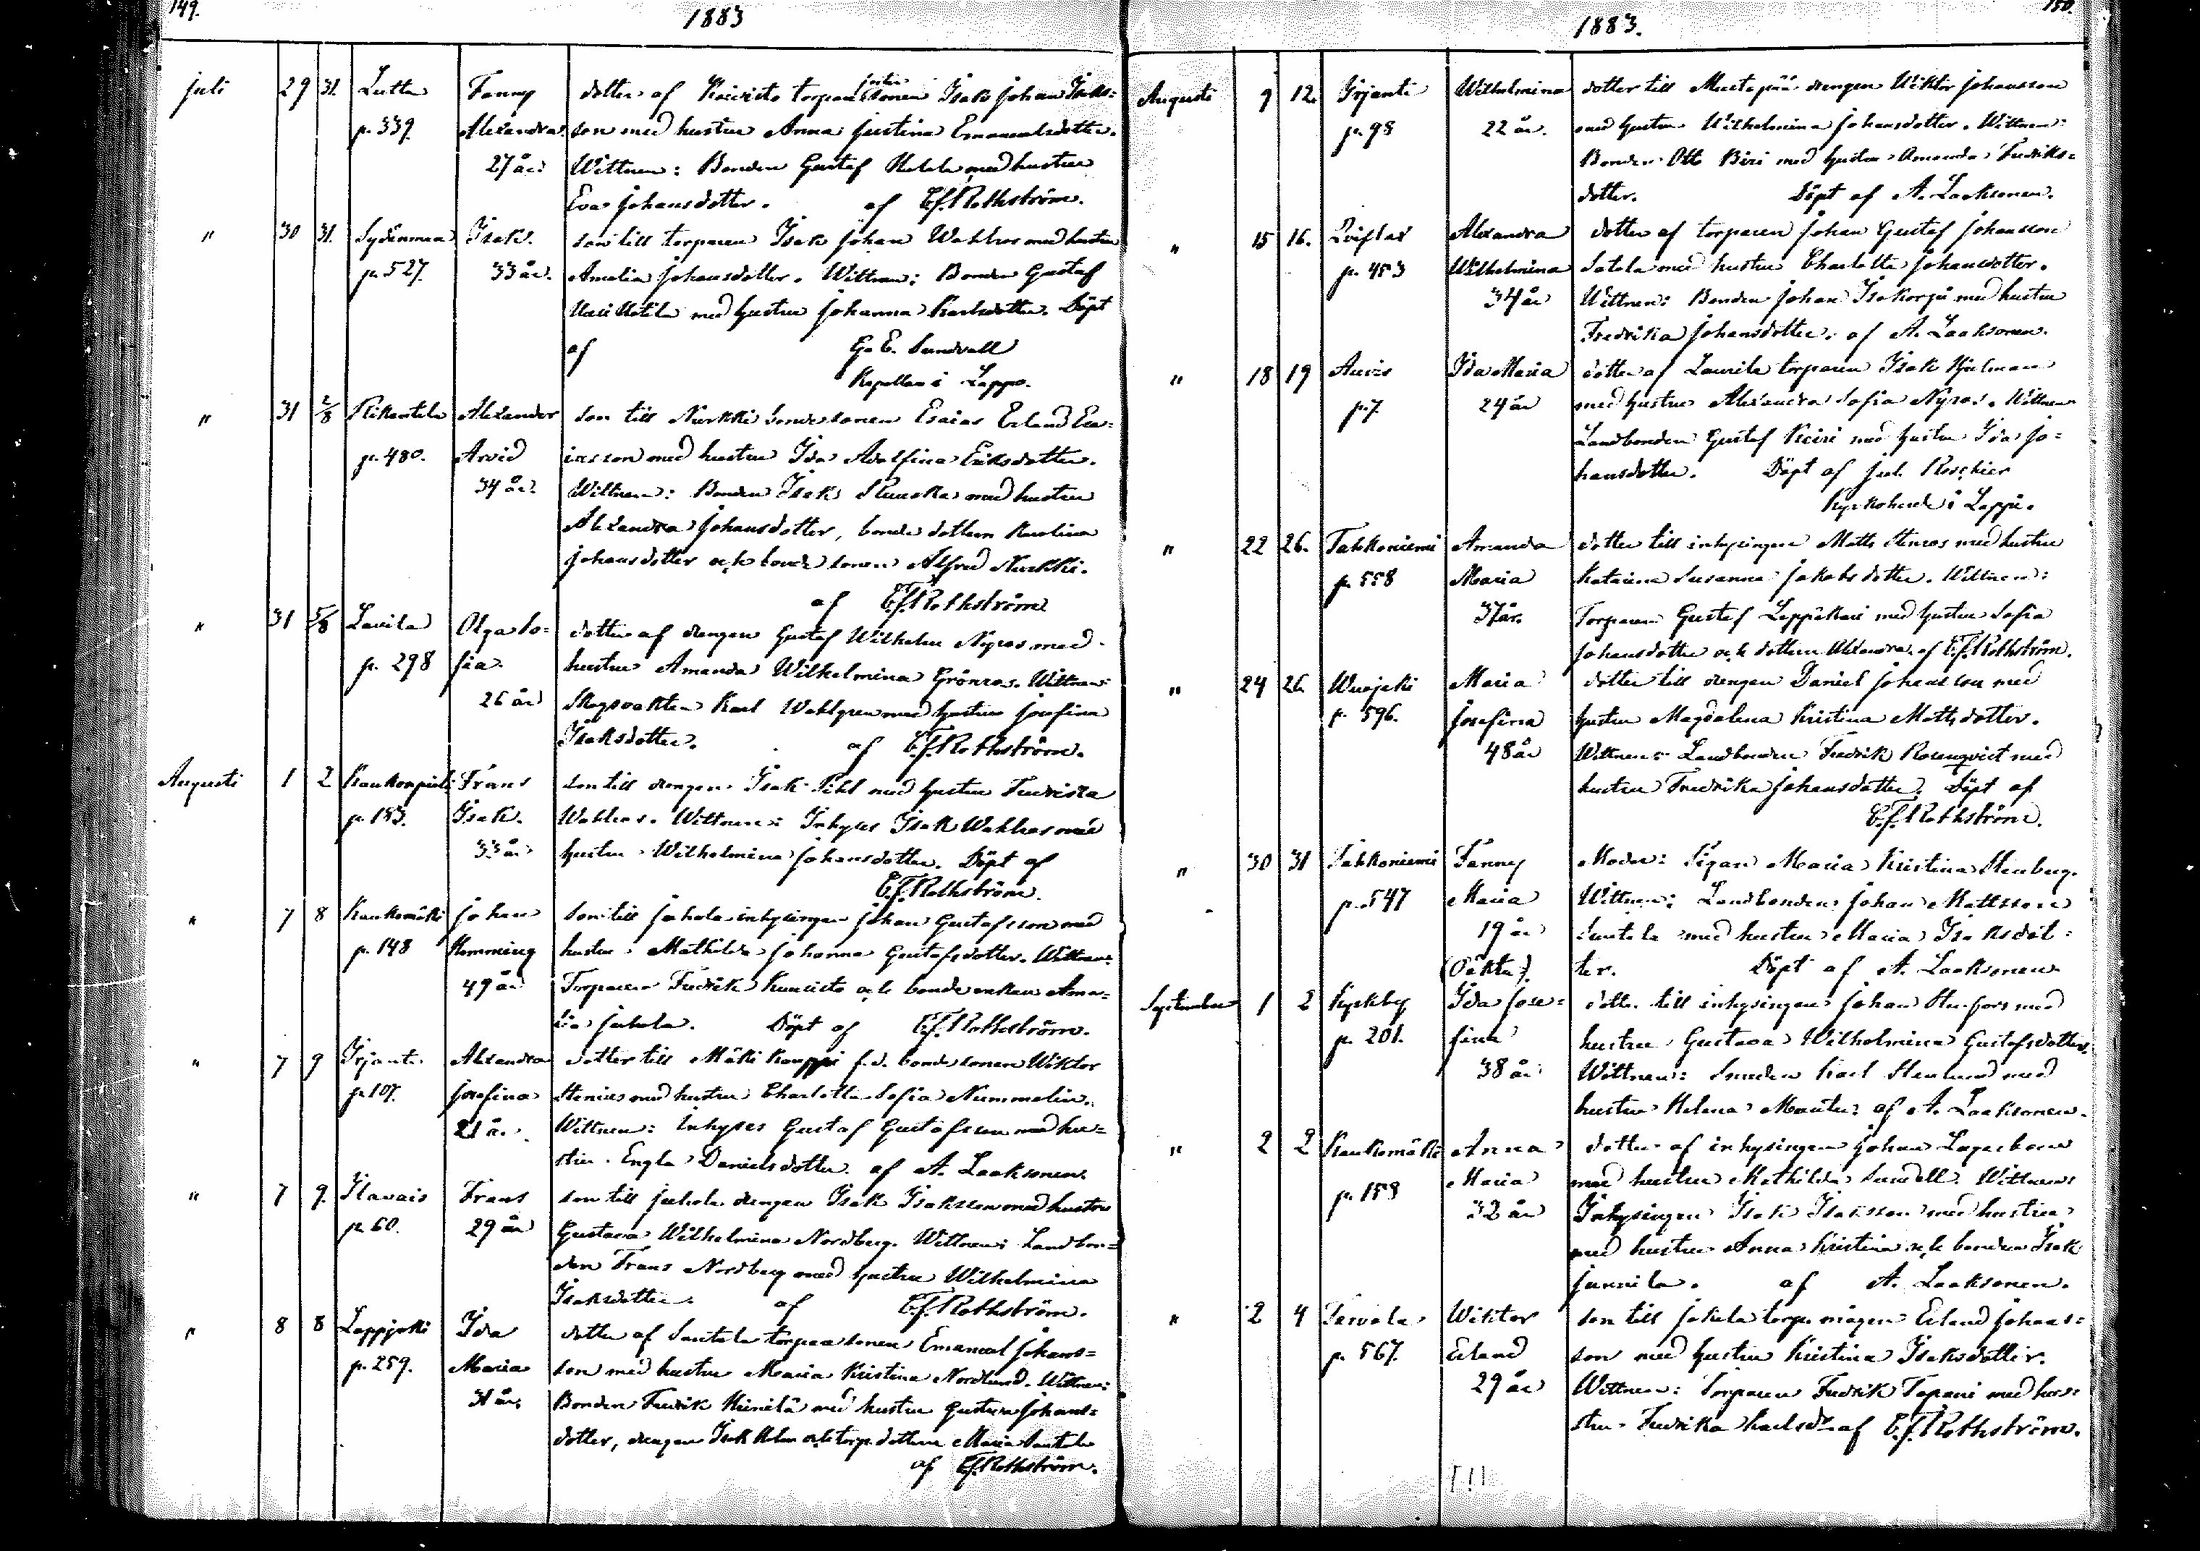 149.
1883
juli 29 31. Lutta Fanny dotter af Koivisto torpare foster sonen Isak Johan Isaks=
p. 339. Alexandra son med hustru Anna Justina Emanuelsdotter.
27 år. Wittnen: Bonden Gustaf Uotila med hustru
Eva Johansdotter. af E.f. Rothström.
" 30 31. Sydänmaa Isak. son till torparen Isak Johan Wahlros med hustru
p. 527. 33 år. Amalia Johansdotter. Wittnen: Bonden Gustaf
Uusi Uotila med hustru Johanna Karlsdotter. Döpt
af G. E. Sundvall
Kapellan i Lappo.
" 31 2/8 Alexander son till Nurkki bonde sonen Esaias Erland Esa=
p. 480. Arvid iasson med hustru Ida Adolfina Eriksdotter.
34 år. Wittnen: Bonden Isak med hustru
Alexandra Johansdotter, bonde dottern Karolina
Johansdotter och bonde sonen Alfred Nurkki.
af E.f. Rothström
" 31 5/8 Lavila Olga So= dotter af drengen Gustaf Wilhelm Nyros med
p. 298 fia. hustru Amanda Wilhelmina Grönroos. Wittnen:
26 år Skogsvakten Karl Wahlgren med hustru Josefina
Isaksdotter. af E.f. Rothström.
Augusti 1 2 Kaukonpieli Frans son till drengen Isak Sihl med hustru Fredrika
p. 183. Isak. Wahlros. Wittnen: Inhyses Isak Wahlros med
33 år hustru Wilhelmina Johansdotter. Döpt af
E.f. Rothström.
" 7 8 Kaukomäki Johan son till Juhola inhysingen Johan Gustafsson med
p. 148 Hemming hustru Mathilda Johanna Gustafsdotter. Wittnen:
49 år Torparen Fredrik Kuusisto och bonde enkan Ama=
lia Juhola. Döpt af E.f. Rothström.
" 7 9 Irjanti Alexandra dotter till Mäki Karppi f.d. bonde sonen Wiktor
p. 107. Josefina Stenius med hustru Charlotta Sofia Nummelin.
21 år. Wittnen: Inhyses Gustaf Gustafsson med hu=
stru Engla Danielsdotter. af A. Laaksonen.
" 7 9. Ilavais Frans son till Juhola drengen Isak Isaksson med hustru
p. 60. 29 år Gustava Wilhelmina Nordberg. Wittnen: Landbon=
den Frans Nordberg med hustru Wilhelmina
Isaksdotter. af E.f. Rothström.
" 8 8 Lappjoki Ida dotter af Santala torpare sonen Emanuel Johans=
p. 259. Maria son med hustru Maria Kristina Nordlund. Wittnen:
31 år. Bonden Fredrik Heinilä med hustru Gustava Johans=
dotter, drengen Isak Holm och torp. dottern Maria Santala
af E.f. Rothström.
150.
1883.
Augusti 9 12. Irjanti Wilhelmina dotter till Mustapää drengen Wiktor Johansson
p. 98 22 år. med hustru Wilhelmina Johansdotter. Wittnen:
Bonden Otto Biri med hustru Amanda Fredriks=
dotter. Döpt af A. Laaksonen.
" 15 16. Alexandra dotter af torparen Johan Gustaf Johansson
p. 453 Wilhelmina Satola med hustru Charlotta Johansdotter.
34 år Wittnen: Bonden Johan Isokorpi med hustru
Fredrika Johansdotter. af A. Laaksonen.
" 18 19 Auvis Ida Maria dotter af Laurila torparen Isak Hjelman
p. 7. 24 år med hustru Alexandra Sofia Nyros. Wittnen
Landbonden Gustaf Keiri med hustru Ida Jo=
hansdotter. Döpt af Jul. Roschier
Kyrkoherde i Lappi.
" 22 26. Tahkoniemi Amanda dotter till inhysingen Matts Stenros med hustru
p. 558 Maria Katarina Susanna Jakobsdotter. Wittnen:
37 år. Torparen Gustaf Leppäkari med hustru Sofia
Johansdotter och dottern Alexandra. af E.f. Rothström.
" 24 26. Wuojoki Maria dotter till drengen Daniel Johansson med
p. 596. Josefina hustru Magdalena Kristina Mattsdotter.
48 år Wittnen: Landbonden Fredrik Rosenqvist med
hustru Fredrika Johansdotter. Döpt af
E.f. Rothström.
" 30 31 Tahkoniemi Fanny Moder: Pigan Maria Kristina Stenberg.
p. 547 Maria Wittnen: Landbonden Johan Mattsson
19 år Santala med hustru Maria Isaksdot=
(Oäkta). ter. Döpt af A. Laaksonen
September 1 2 Kyrkby Ida Jose= dotter till inhysingen Johan Stenfors med
p. 201. fina hustru Gustava Wilhelmina Gustafsdotter.
38 år Wittnen: Smeden Karl Stenlund med
hustru Helena Mantu. af A. Laaksonen.
" 2 2 Kaukomäki Anna dotter af inhysingen Johan Lagerbom
p. 158 Maria med hustru Mathilda Sundell. Wittnen
32 år Inhysingen Isak Isaksson med hustru
med hustru Anna Kristina och bonden Isak
Junnila. af A. Laaksonen.
" 2 4 Tarvola Wiktor son till Jokela torpe mågen Erland Johans=
p. 567. Erland son med hustru Kristina Isaksdotter.
29 år Wittnen: Torparen Fredrik Tapani med hu=
stru Fredrika Karlsdr. af E.f. Rothström.